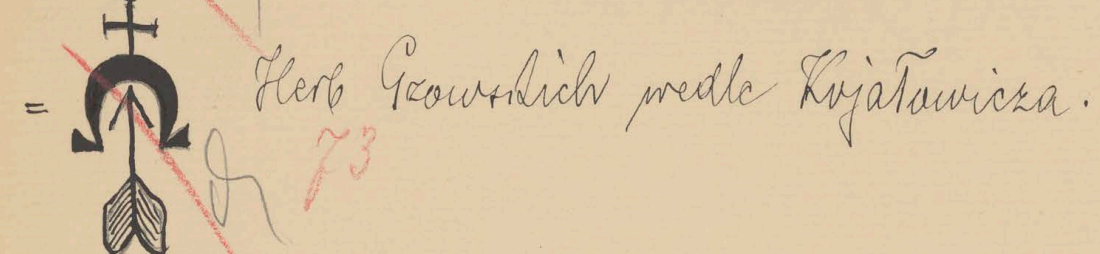 = Herb Gzowskich wedle Kojałowicza.
73